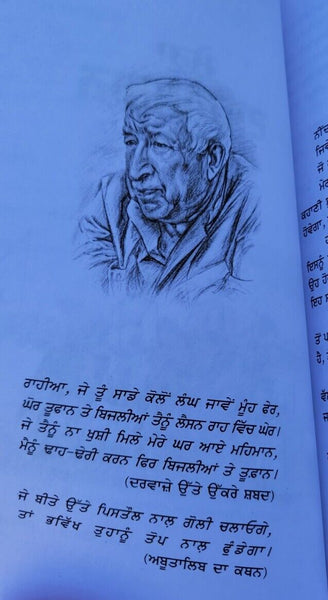 ਰਾਹੀਆ, ਜੇ ਤੂੰ ਸਾਡੇ ਕੋਲੋਂ ਲੰਘ ਜਾਵੇਂ ਮੂੰਹ ਫੇਰ,
ਘੋਰ ਤੂਫਾਨ ਤੇ ਬਿਜਲੀਆਂ ਤੈਨੂੰ ਲੈਸਨ ਰਾਹ ਵਿੱਚ ਘੇਰ।
ਜੇ ਤੈਨੂੰ ਨਾ ਖੁਸ਼ੀ ਮਿਲੇ ਮੇਰੇ ਘਰ ਆਏ ਮਹਿਮਾਨ,
ਮੈਨੂੰ ਢਾਹ-ਢੇਰੀ ਕਰਨ ਫਿਰ ਬਿਜਲੀਆਂ ਤੇ ਤੂਫ਼ਾਨ।
(ਦਰਵਾਜ਼ੇ ਉੱਤੇ ਉੱਕਰੇ ਸ਼ਬਦ)
ਜੇ ਬੀਤੇ ਉੱਤੇ ਪਿਸਤੌਲ ਨਾਲ਼ ਗੋਲੀ ਚਲਾਓਗੇ,
ਤਾਂ ਭਵਿੱਖ ਤੁਹਾਨੂੰ ਤੋਪ ਨਾਲ਼ ਫੁੰਡੇਗਾ।
(ਅਬੂਤਾਲਿਬ ਦਾ ਕਥਨ)
ਕਹਾਣੀ
ਹੋਵੇਗਾ,
ਇਸਨੂੰ
ਉਹ ਹੋ
ਇਹ ਸ
ਤੋਂ ਪ
ਹੈ,